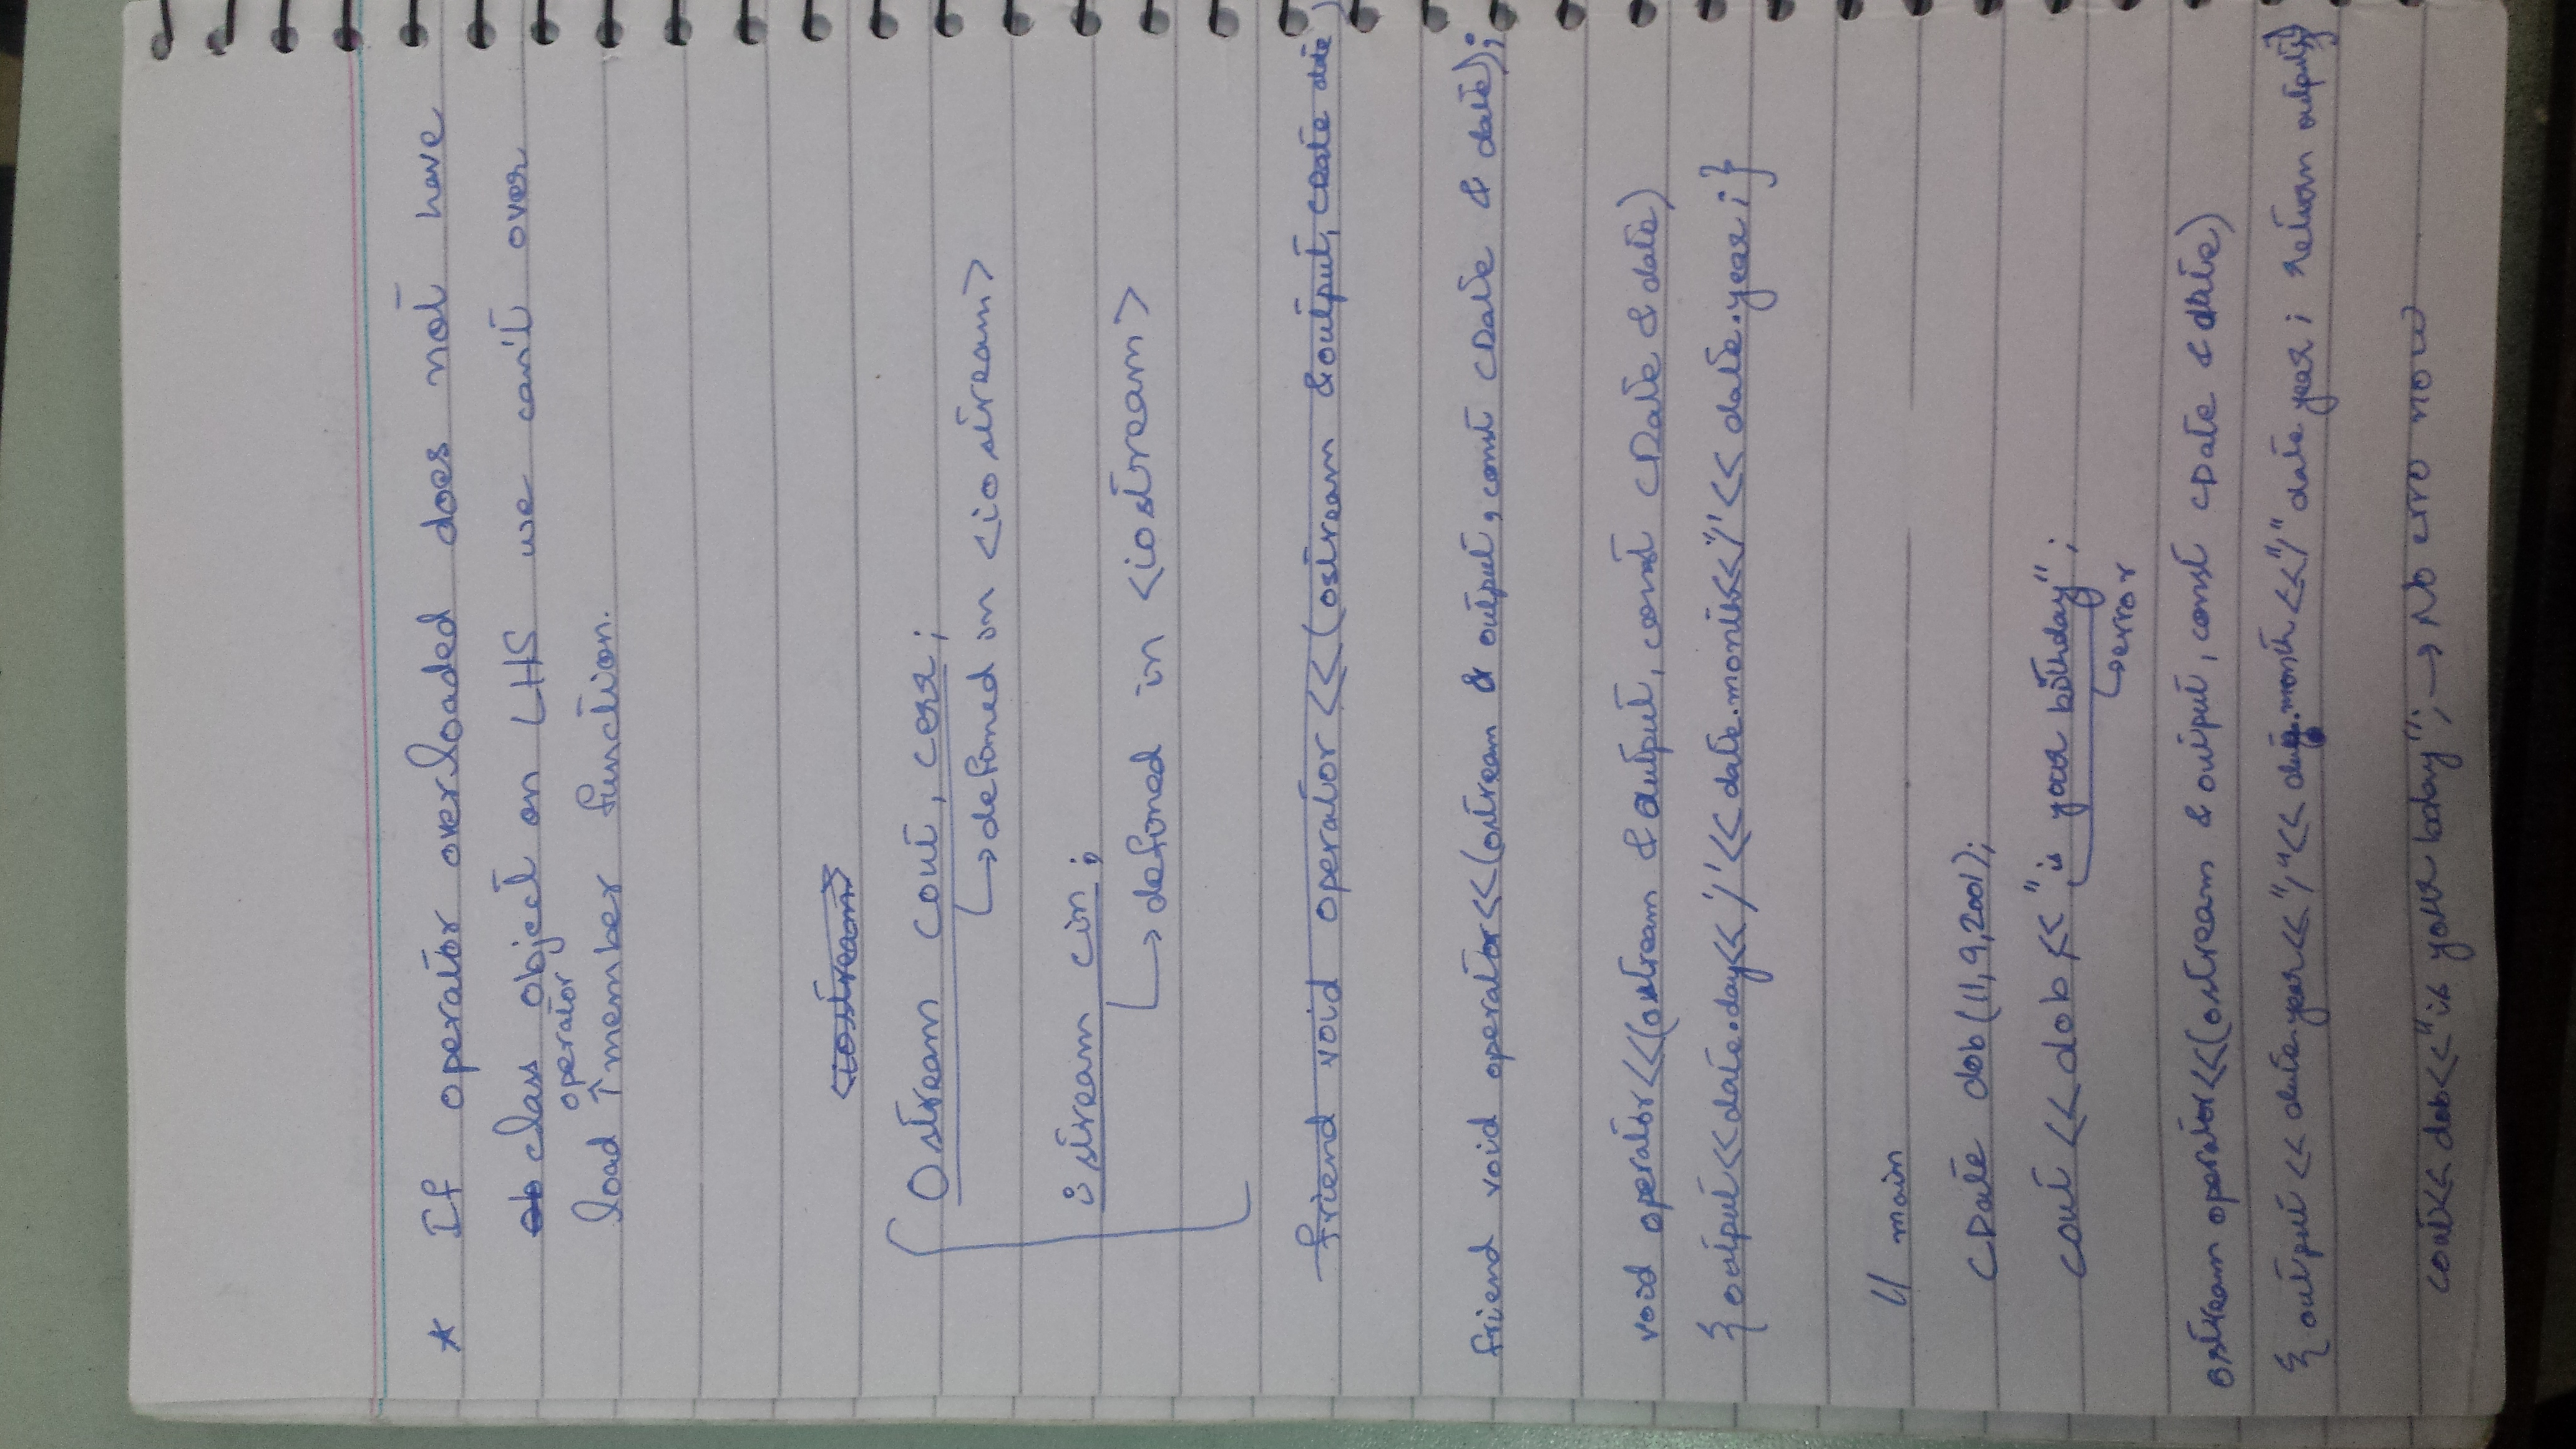 * If operator overloaded does not have
ob class object on LHS we can't over
load operator member function.
<iostream>
Ostream cout, cerr;
→ defined in <iostream>
istream cin;
→ defined in <iostream>
friend void operator<<(ostream &output, cDate date)
friend void operator<<(ostream & output, const CDate & date);
void operator<<(ostream & output, const CDate & date)
{ output<<date.day<<'/'<<date.month<<'/'<<date.year; }
// main
CDate dob(11,9,2001);
cout << dob << "is your birthday";
→ error
ostream operator<<(ostream & output, const CDate & date)
{ output << date.year<<"/"<< date.month<<"/" date year; return output;}
cout<<dob<<"is your bday"; → No erro now